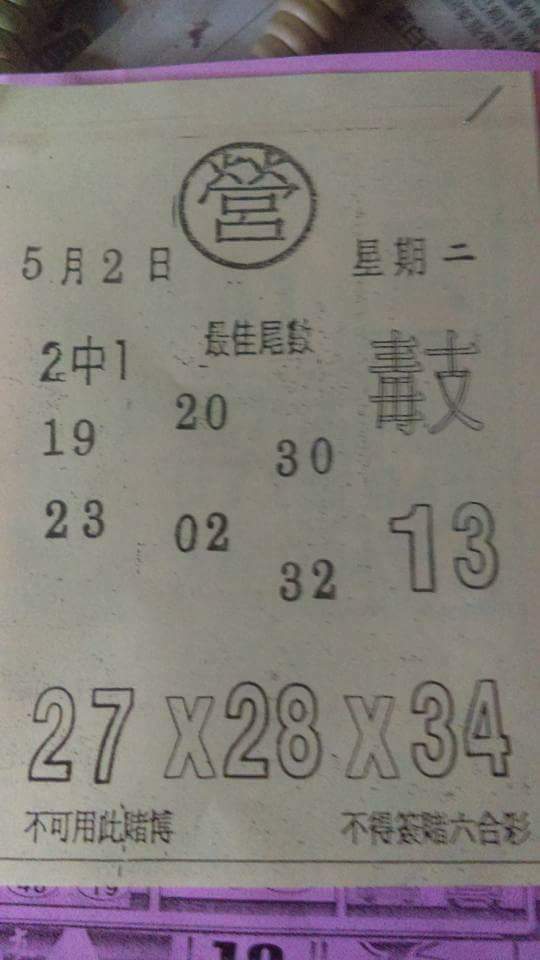 營
5月2日 星期二
2中1 最佳尾數 毒支
19 20 30
23 02 32 13
27 X 28 X 34
不可用此賭博 不得簽賭六合彩